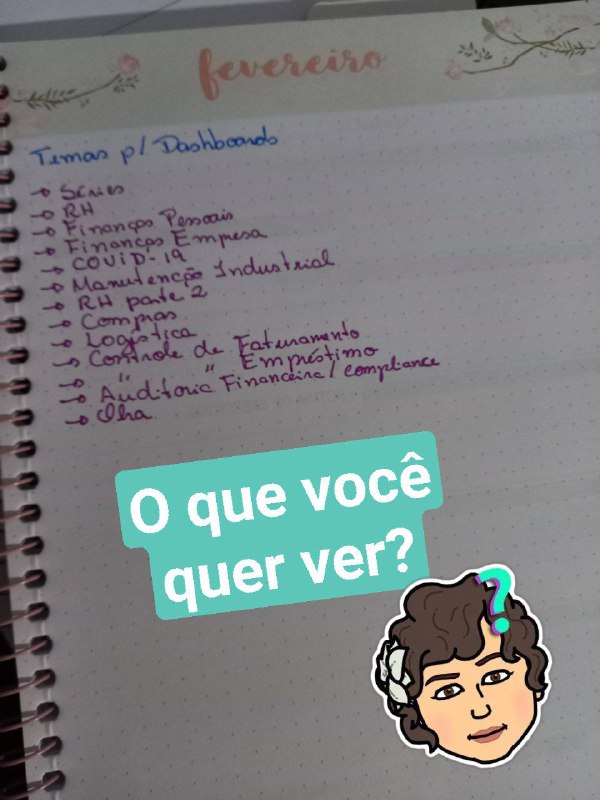 fevereiro
Temas p/ Dashboards
→ Séries
→ RH
→ Finanças Pessoais
→ Finanças Empresa
→ COVID-19
→ Manutenção Industrial
→ RH parte 2
→ Compras
→ Logística
→ Controle de Faturamento
→ " " Empréstimo
→ Auditoria Financeira / compliance
→ Olha
O que você
quer ver?
?